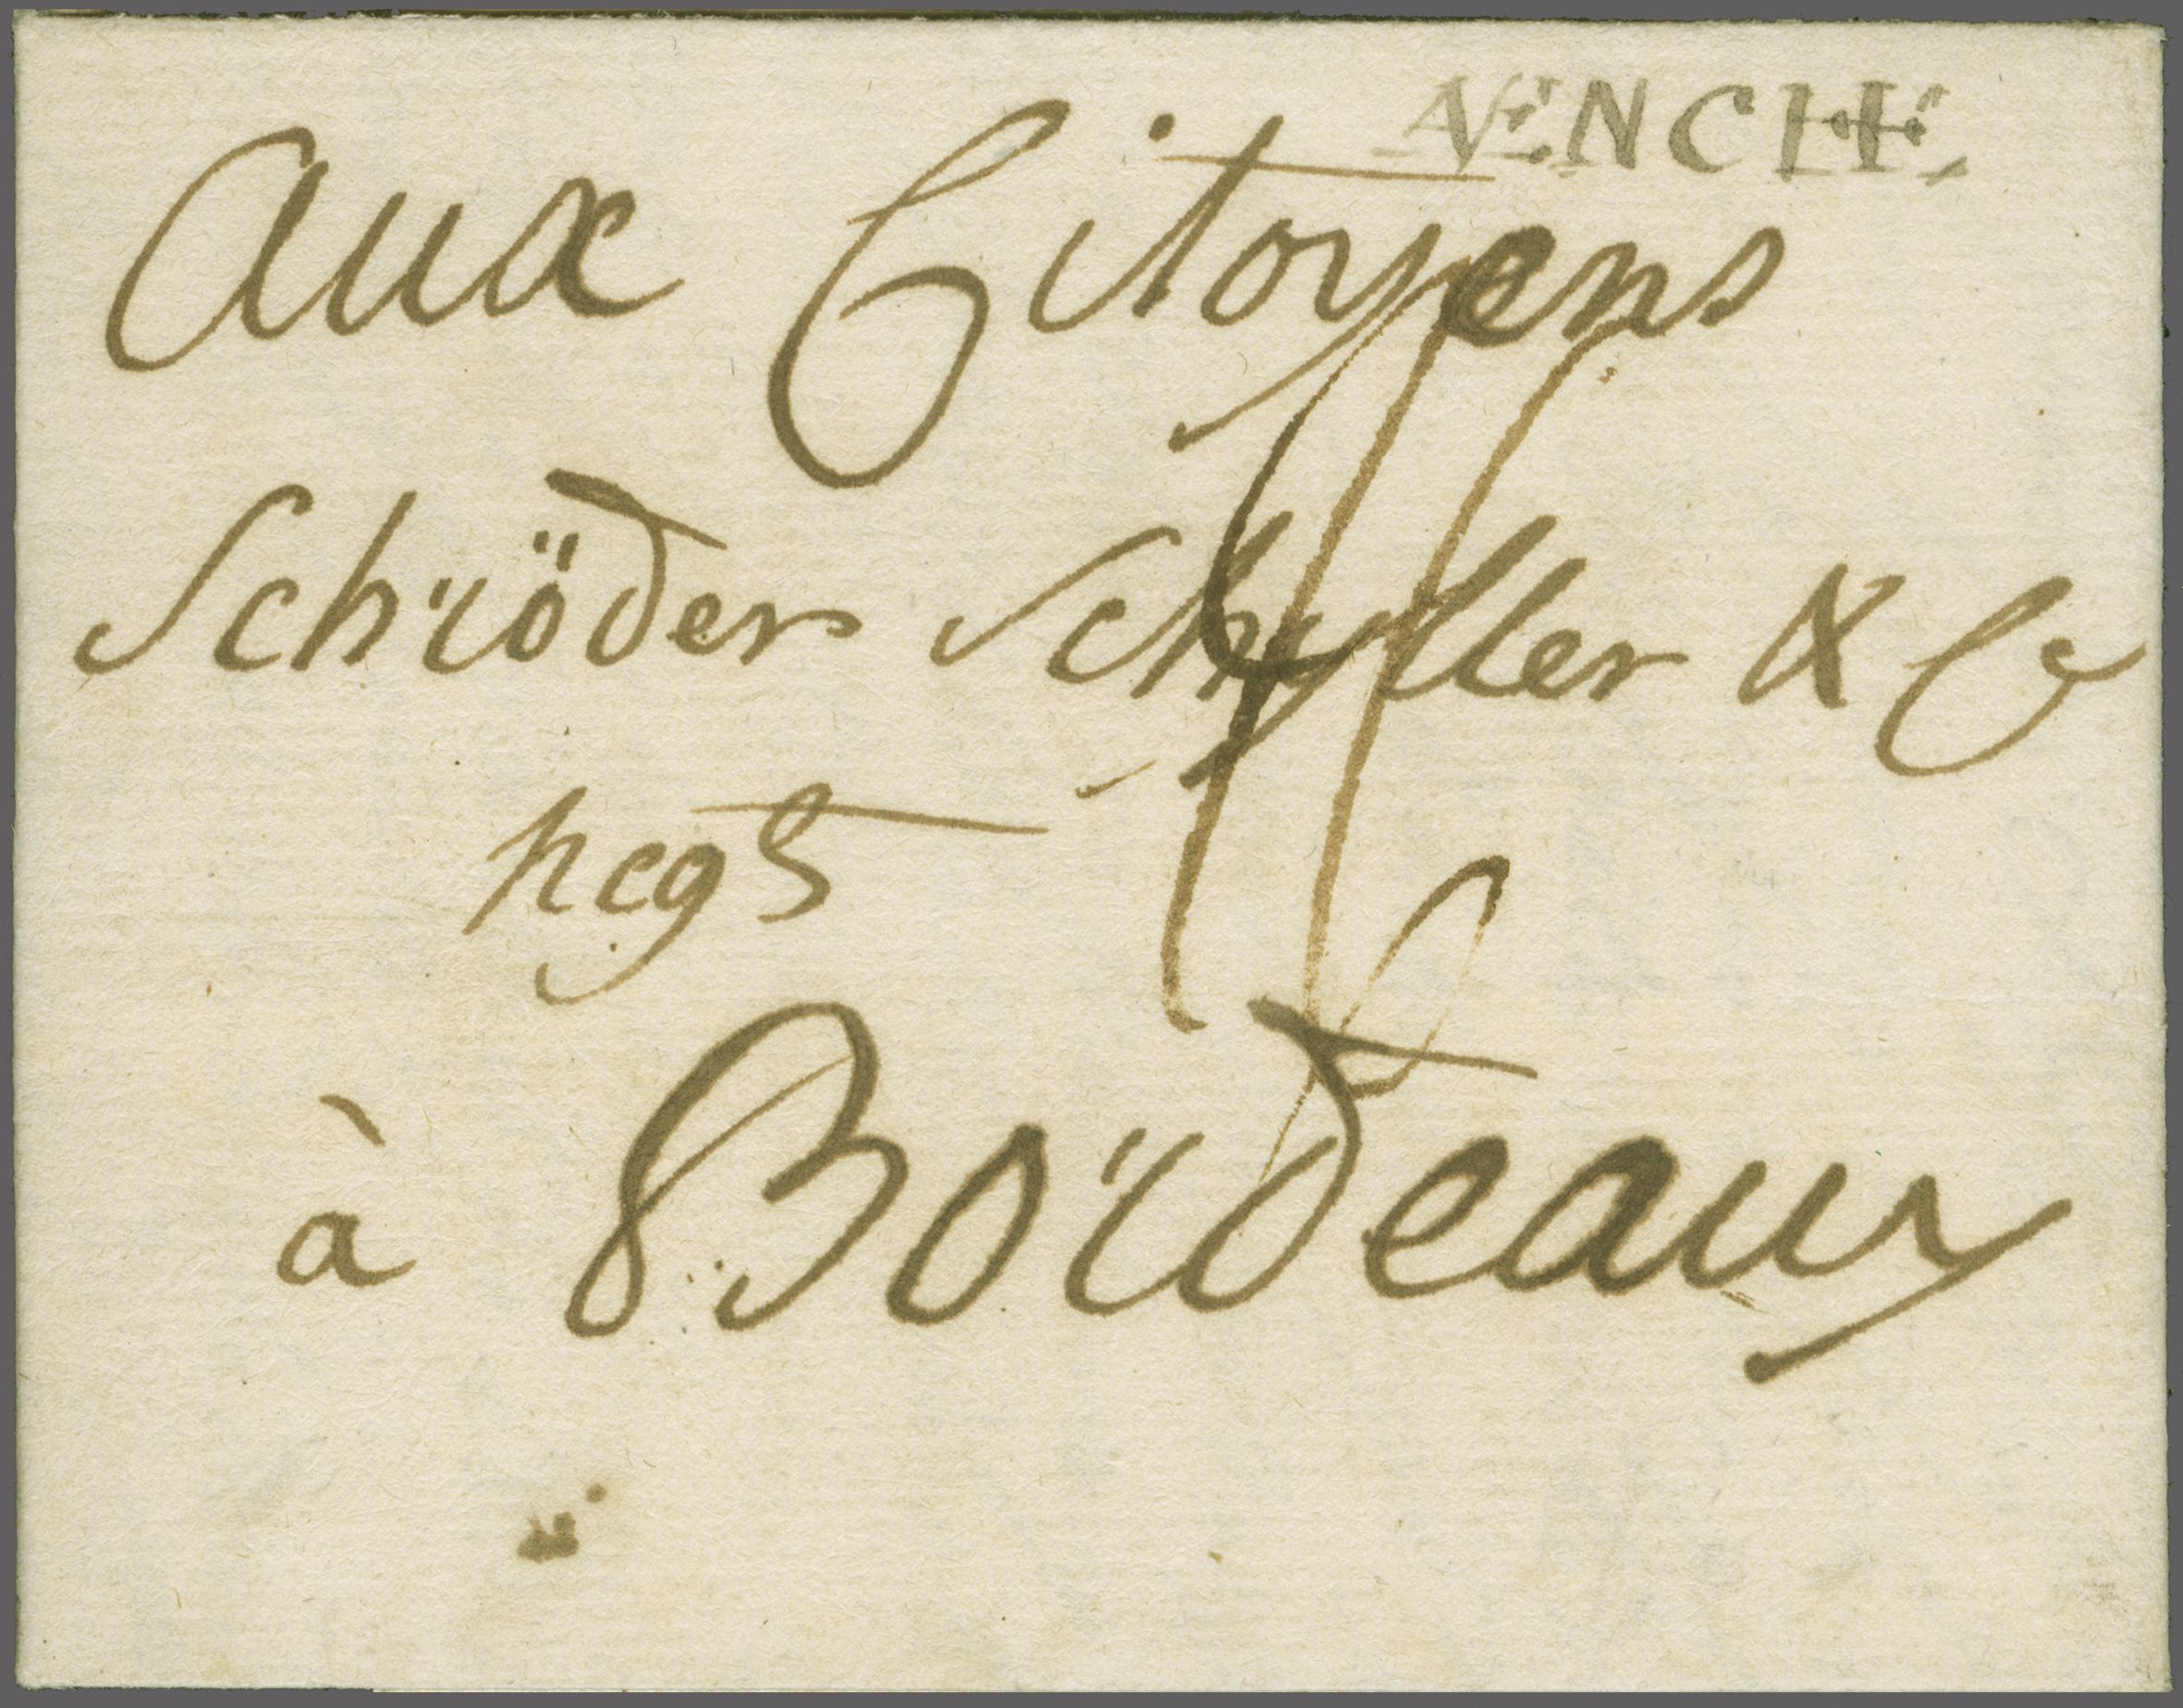 AVENCHE
Aux Citoyens
Schröder Schyller & C
negts
à Bordeaux